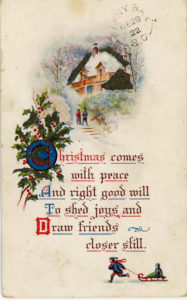 22
Christmas comes
with peace
And right good will
To shed joys and
Draw friends
closer still.